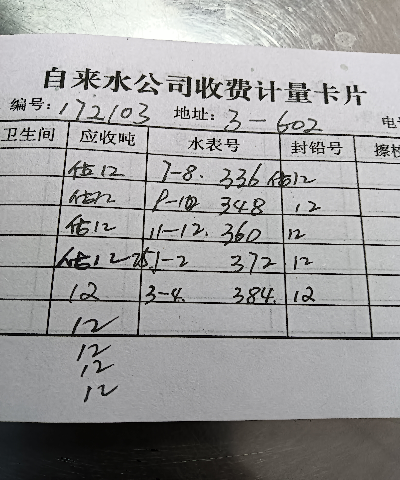 自来水公司收费计量卡片
编号:172103 地址:3-602 电
卫生间 应收吨 水表号 封铅号 擦
估12 7-8. 336 估12
估12 9-10 348 12
估12 11-12. 360 12
估12 25.1-2 372 12
12 3-4. 384. 12
12
12
12
12